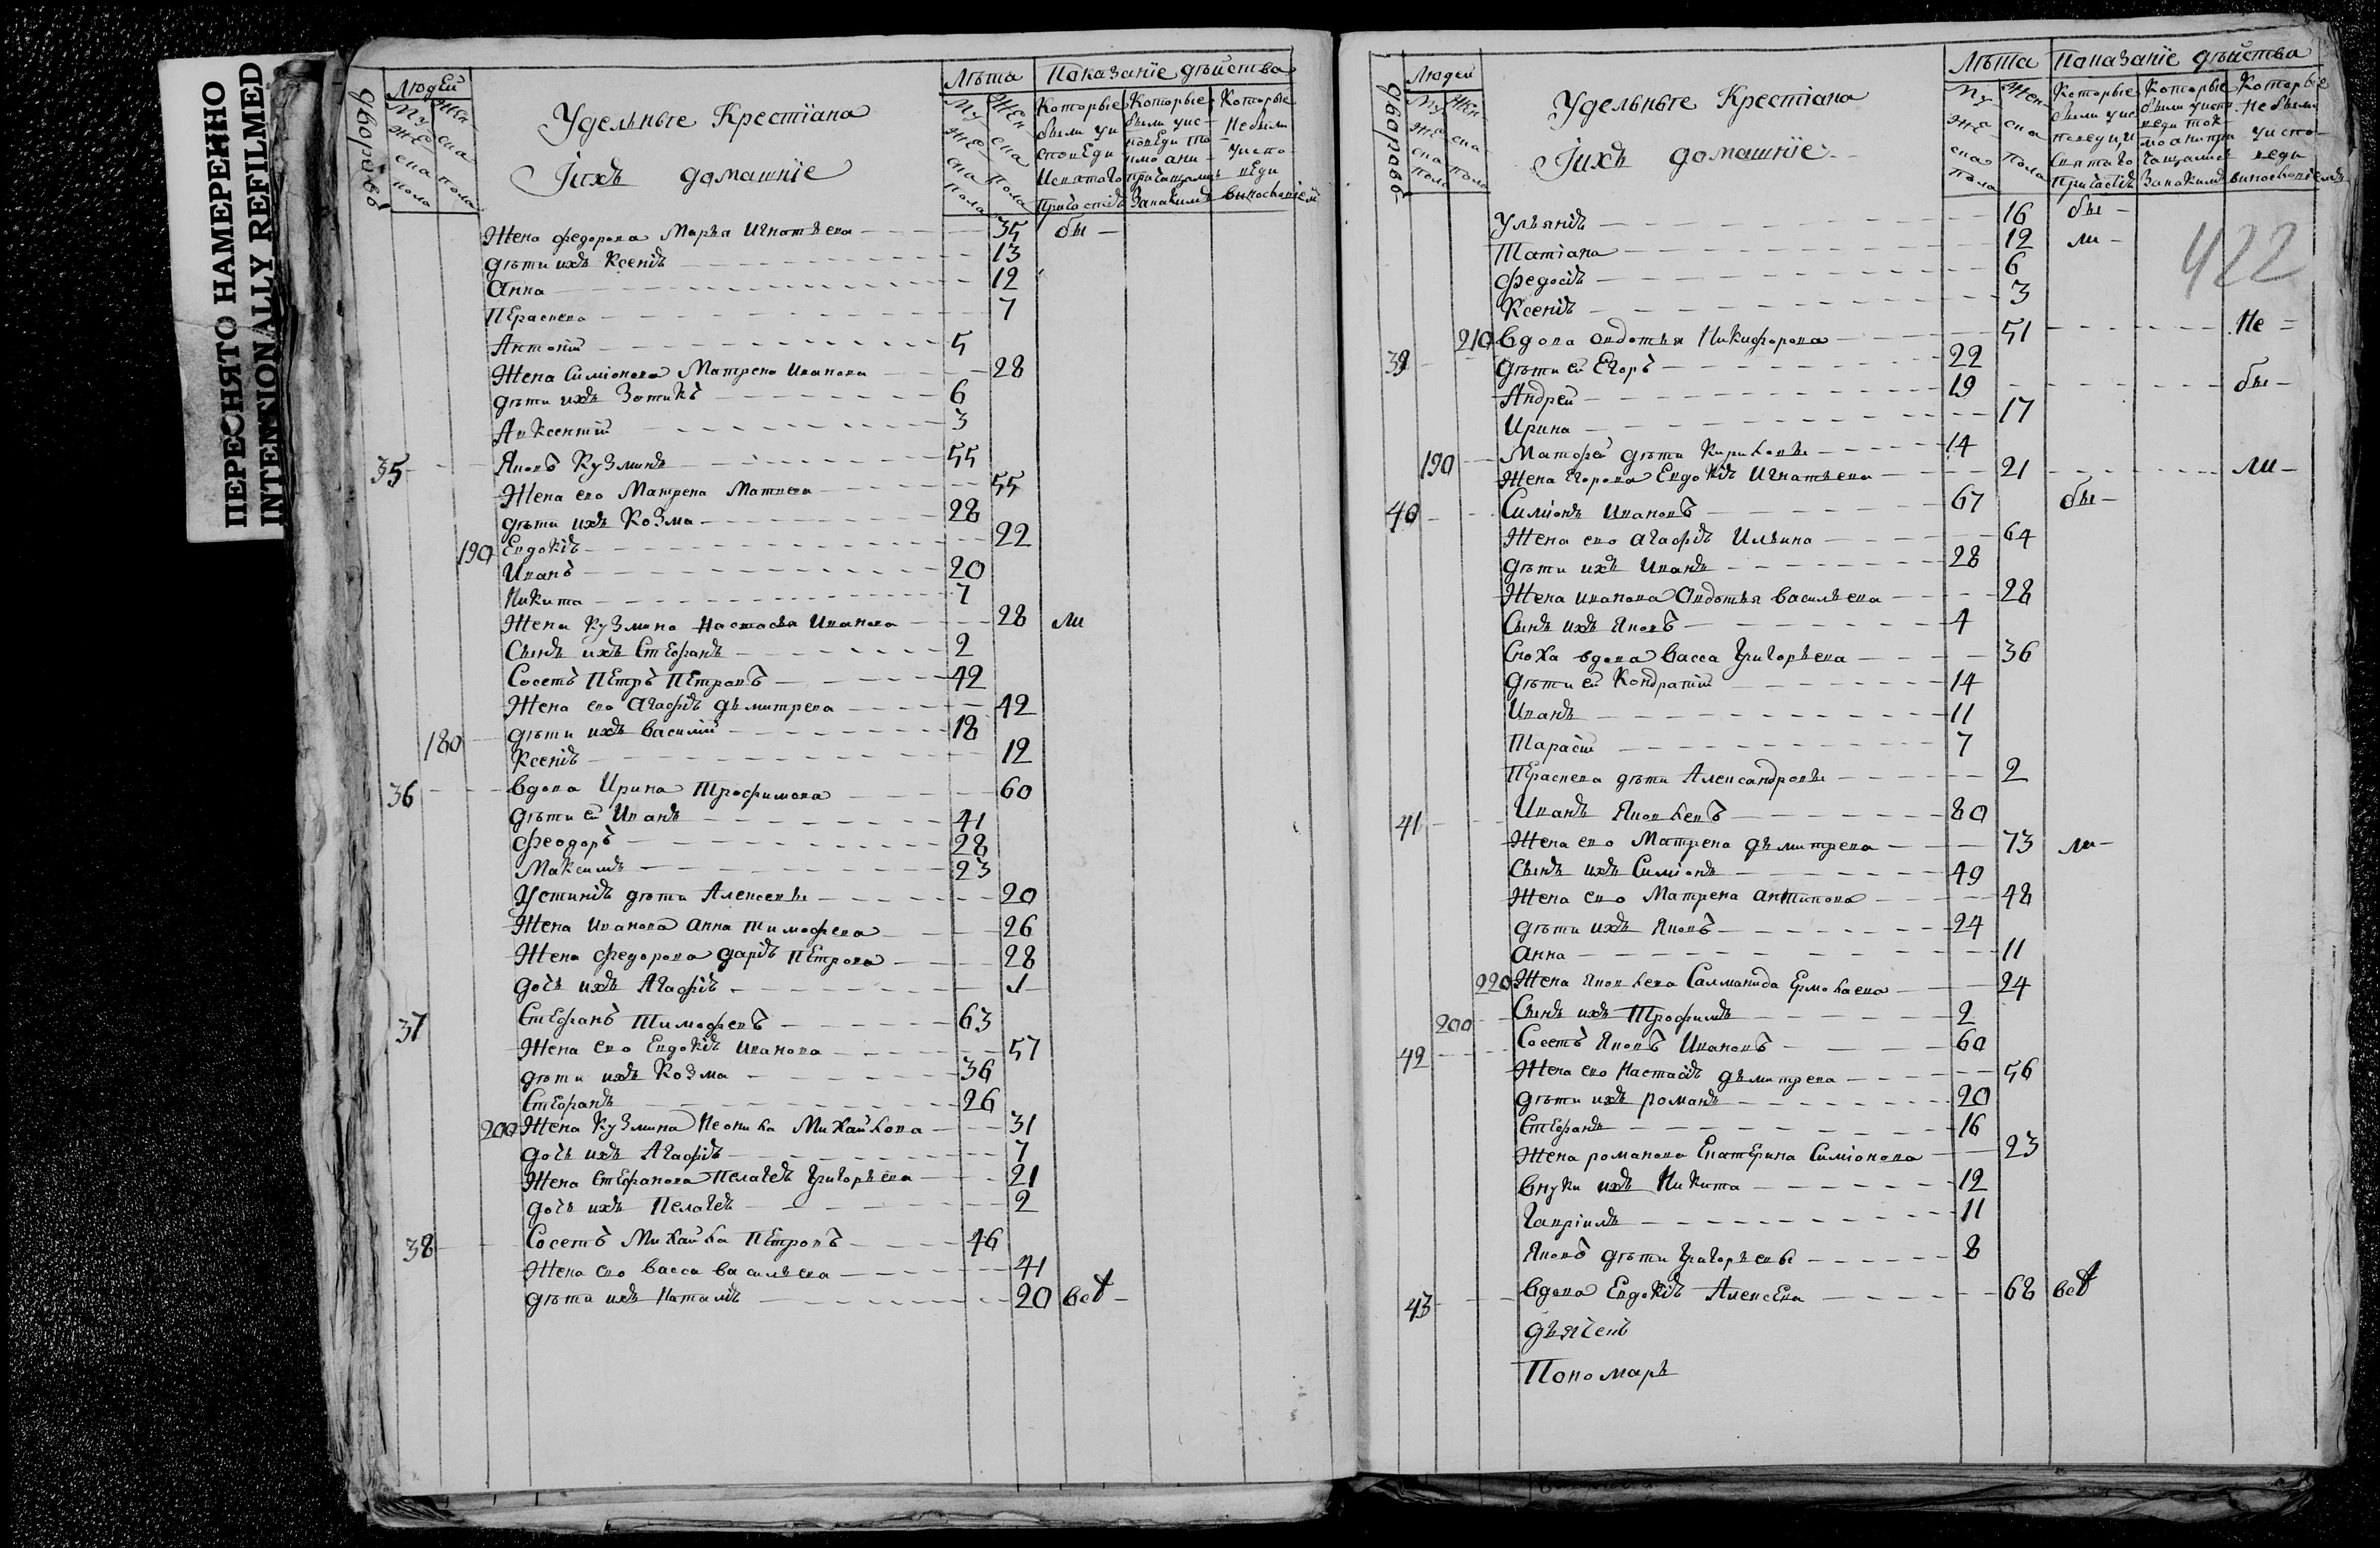 ПЕРЕСНЯТО НАМЕРЕННО
INTENTIONALLY REFILMED
дворовъ
Людей
Мужеска пола
Женска пола
Удельные Крестіана
Іихъ домашніе
Лѣта
Мужеска пола
Женска пола
Показаніе дѣйства
Которые были у исповеди и святаго причастія
Которые были у исповеди токмо а не причащались
Которые не были у исповеди
Жена федорова Марья Игнатьева 35 бы
дѣти ихъ Ксенія 13
Анна 12
Пераскева 7
Антоній 5
Жена Симіонова Матрена Иванова 28
дѣти ихъ Зотикъ 6
Авксентій 3
35 Яковъ Кузминъ 55
Жена ево Матрена Матвева 55
дѣти ихъ Козма 28
190 Евдокія 22
Иванъ 20
Никита 7
Жена Кузмина Настасья Иванова 28 ли
Сынъ ихъ Стефанъ 2
Сосетъ Петръ Петровъ 42
Жена ево Агафія дьмитрева 42
180 дѣти ихъ василій 18
Ксенія 12
36 вдова Ирина Трофимова 60
дѣти ей Иванъ 41
феодоръ 28
Максимъ 23
Устинія дѣти Алексевы 20
Жена иванова анна тимофева 26
Жена федорова дарія Петрова 28
дочь ихъ Агафія 1
37 Стефанъ Тимофевъ 63
Жена ево Евдокія иванова 57
дѣти ихъ Козма 36
Стефанъ 26
200 Жена Кузмина Неонила Михайлова 31
дочь ихъ Агафія 7
Жена Стефанова Пелагея Григорьева 21
дочь ихъ Пелагея 2
38 Сосетъ Михайла Петровъ 46
Жена ево васса васильева 41
дѣти ихъ Наталія 20 всѣ
дворовъ
Людей
Мужеска пола
Женска пола
Удельные Крестіана
Іихъ домашніе
Лѣта
Мужеска пола
Женска пола
Показаніе дѣйства
Которые были у исповеди и святаго причастія
Которые были у исповеди токмо а не причащались
Которые не были у исповеди
422
Ульянія 16 бы
Татіана 12 ли
федосія 6
Ксенія 3
210 вдова авдотья Никифорова 51 Не
39 дѣти ей Егоръ 22
Андрей 19 бы
Ирина 17
190 Матфей дѣти Кириловы 14
Жена Егорова Евдокія Игнатьева 21 ли
40 Симіонъ ивановъ 67 бы
Жена ево агафія Ильина 64
дѣти ихъ Иванъ 28
Жена иванова Авдотья васильева 28
Сынъ ихъ Яковъ 4
Сноха вдова васса Григорьева 36
дѣти ей Кондратій 14
Иванъ 11
Тарасій 7
Пераскева дѣти Александровы 2
41 Иванъ Яковлевъ 80
Жена ево Матрена дьмитрева 73 ли
Сынъ ихъ Симіонъ 49
Жена ево Матрена антипова 48
дѣти ихъ Яковъ 24
анна 11
220 Жена яковлева Салманида Ермолаева 24
200 Сынъ ихъ Трофимъ 2
42 Сосетъ Яковъ Ивановъ 60
Жена ево Настасія дьмитрева 56
дѣти ихъ романъ 20
Стефанъ 16
Жена романова Екатерина Симіонова 23
внуки ихъ Никита 12
Гавріилъ 11
Яковъ дѣти Григорьевы 8
43 вдова Евдокія Алексева 68 всѣ
дьячекъ
Пономарь